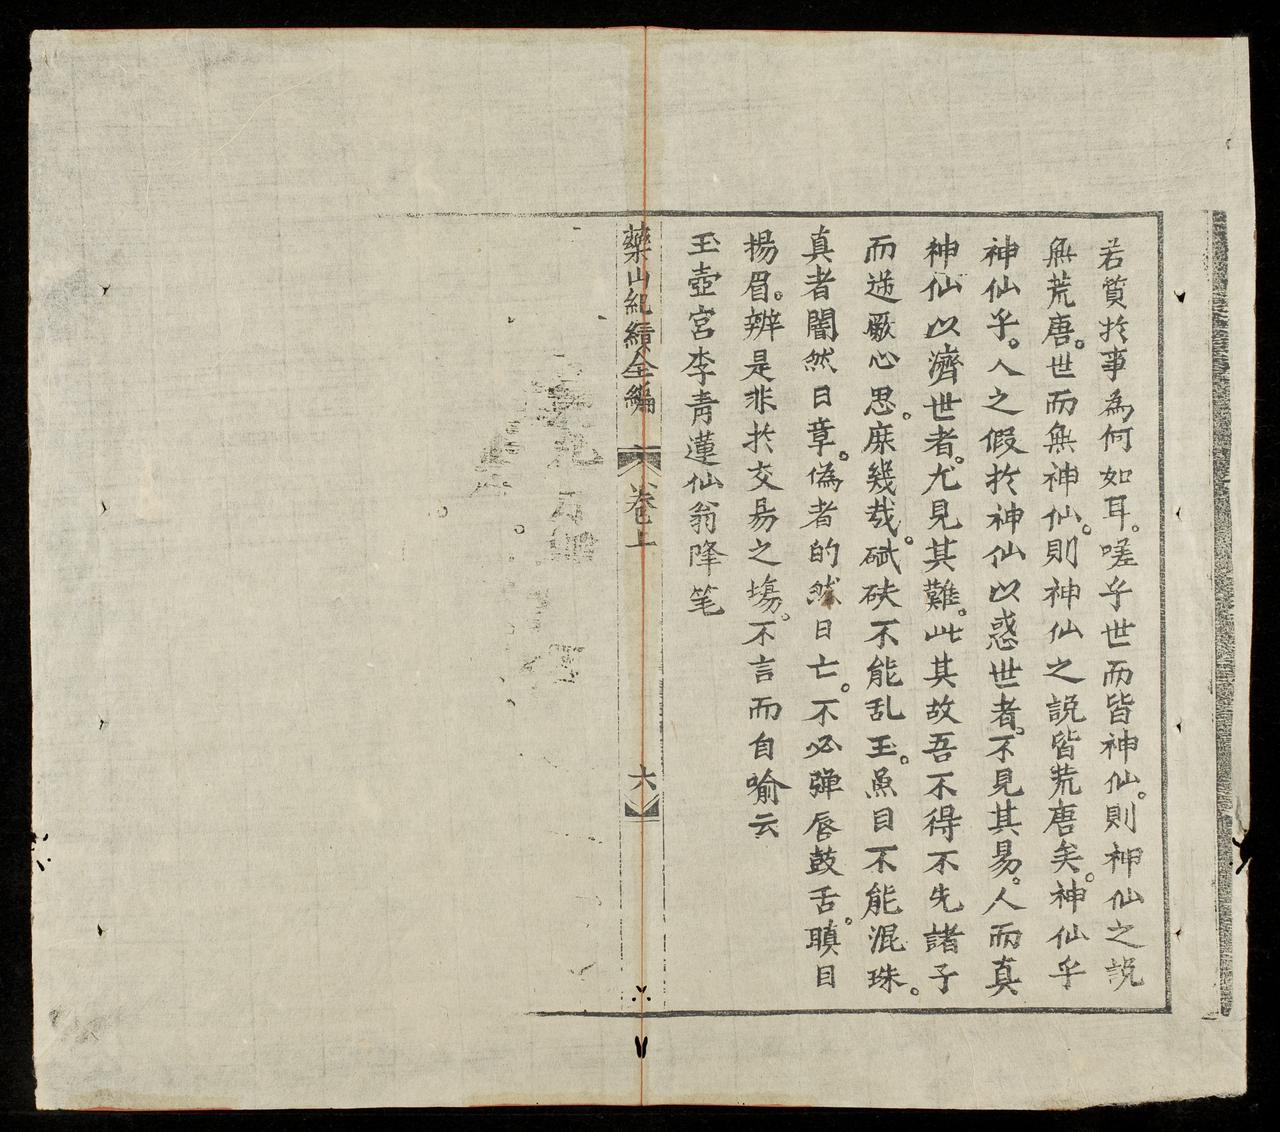 若質扵事為何如耳。嗟乎世而皆神仙。則神仙之説
無荒唐。世而無神仙。則神仙之説皆荒唐矣。神仙乎
神仙乎。人之假扵神仙以惑世者。不見其易。人而真
神仙以濟世者。尤見其難。此其故吾不得不先諸子
而逆厥心思。庶幾哉。碔砆不能乱玉。魚目不能混珠。
真者闇然日章。偽者的然日亡。不必弾唇鼓舌。瞋目
揚眉。辨是非扵交易之塲。不言而自喻云
玉壺宮李青蓮仙翁降笔
藥山紀績全編
卷上
六